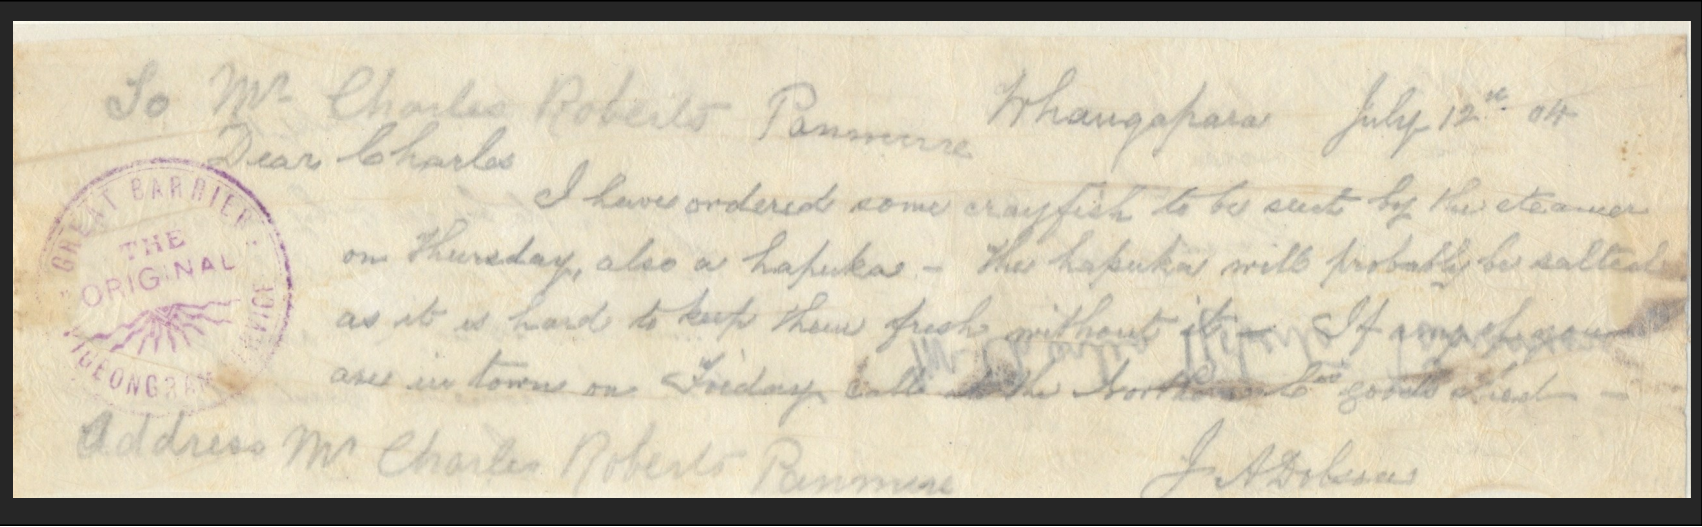 To Mr Charles Roberts Panmure Whangapara July 12th 04
Dear Charles
I have ordered some crayfish to be sent by the steamer
on Thursday, also a hapuka - The hapuka will probably be salted
as it is hard to keep them fresh without it - If any of you
are in town on Friday call at the Northern Co's goods shed -
Address Mr Charles Roberts Panmure
J A Dobson
GREAT BARRIER
THE
ORIGINAL
PIGEONGRAM